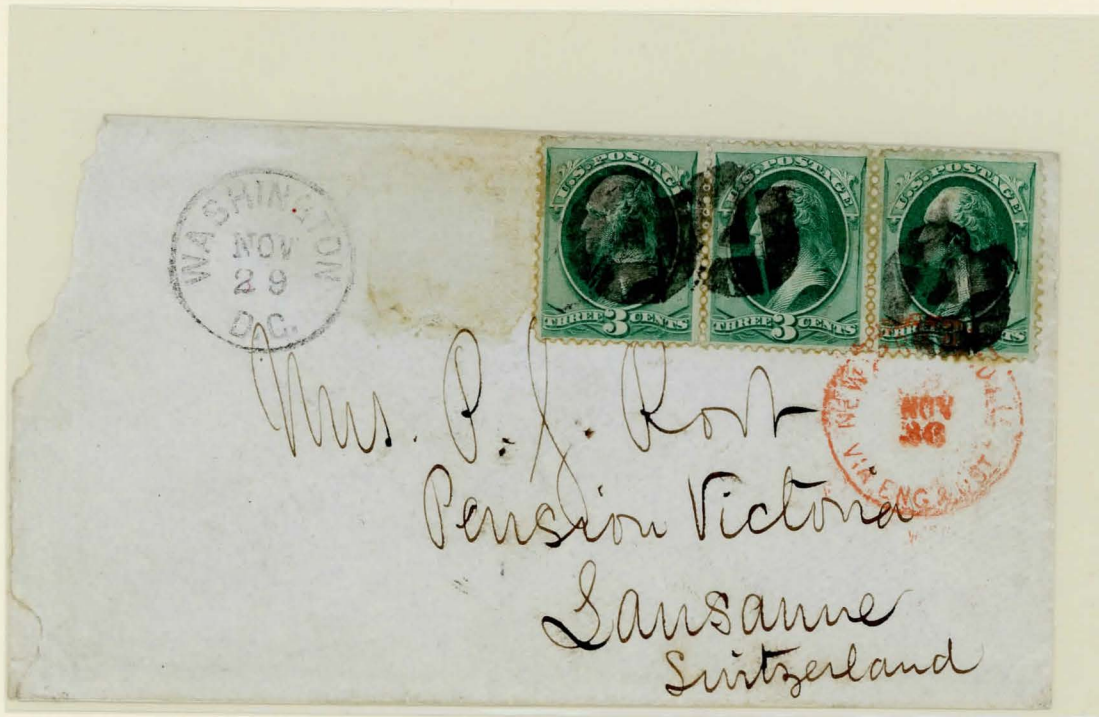 WASHINGTON
NOV
29
D.C.
U.S. POSTAGE
THREE 3 CENTS
U.S. POSTAGE
THREE 3 CENTS
U.S. POSTAGE
THREE CENTS
NEW
NOV
30
VIA ENG. & OST
Mrs. P. J. Rost
Pension Victoria
Lausanne
Switzerland